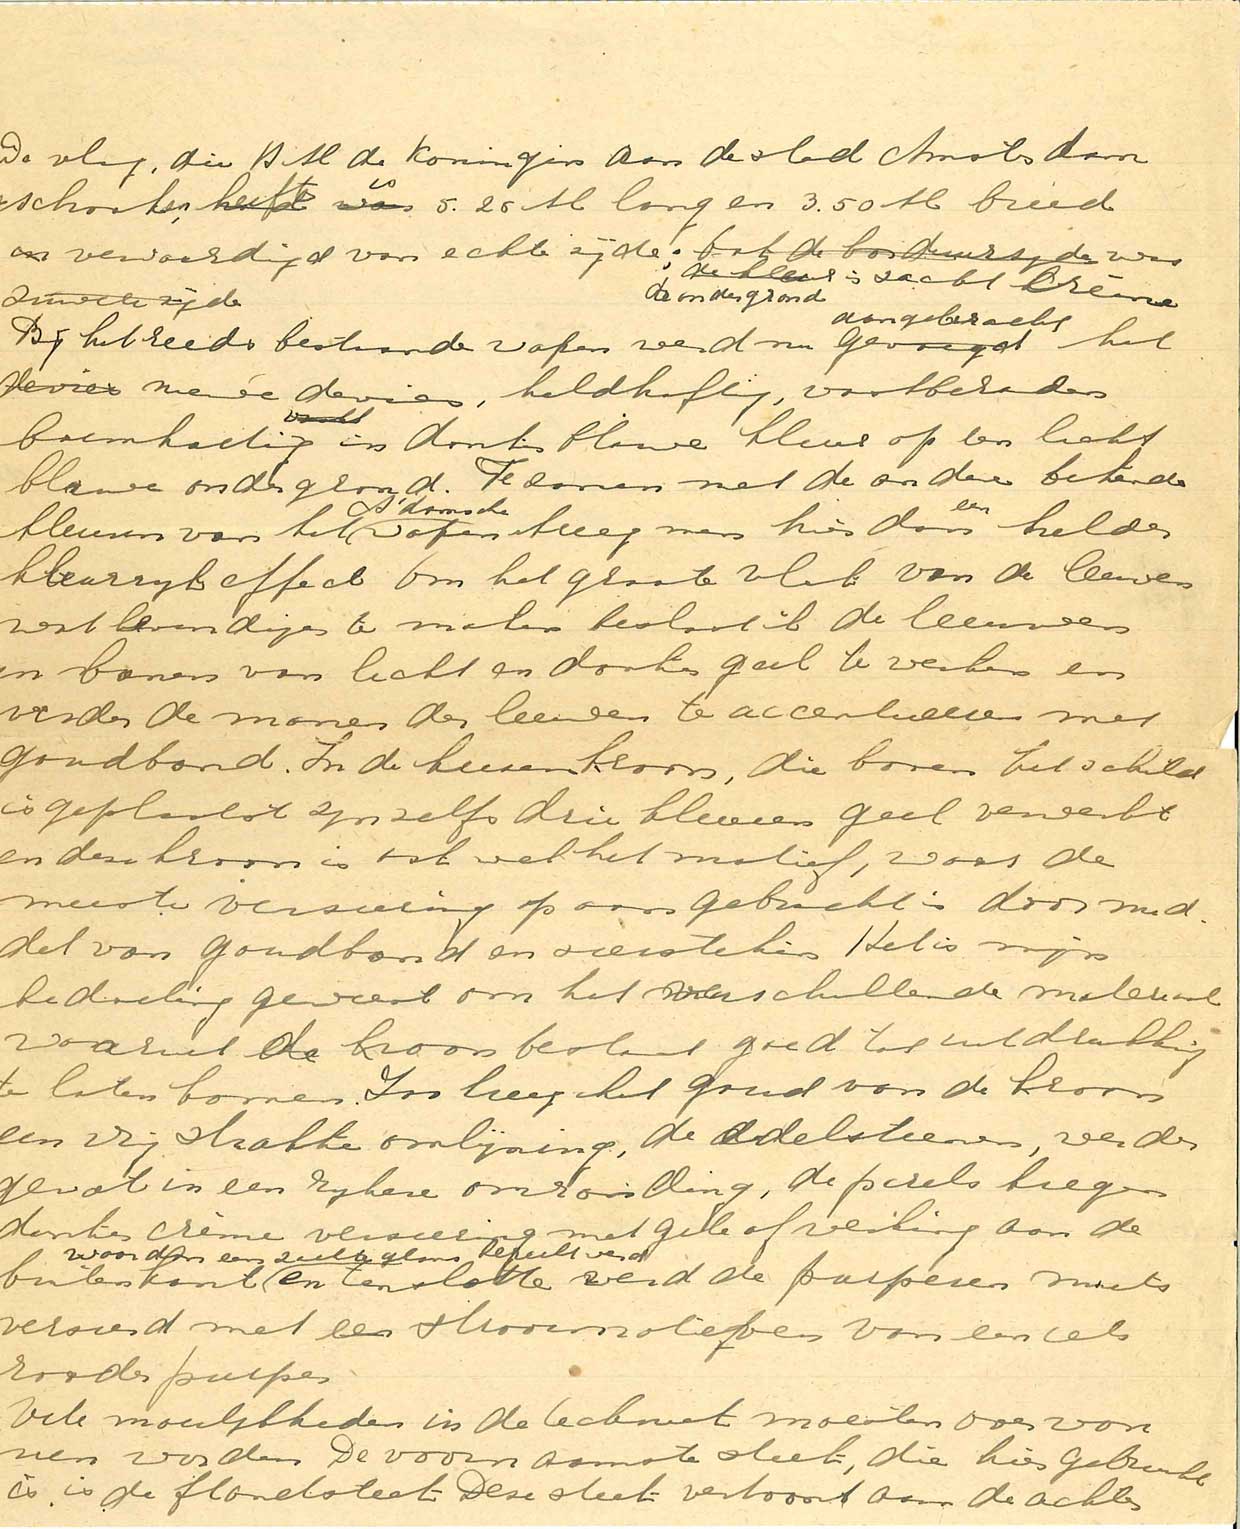 De vlag, die H.M. de Koningin aan de stad Amsterdam
schonk, heeft was is 5.25 M lang en 3.50 M breed
en vervaardigd van echte zijde; de borduurzijde was
de kleur is zacht crème
zijde de ondergrond
aangebracht
Bij het reeds bestaande wapen werd nu gevoegd het
devies nieuwe devies, heldhaftig, vastberaden
barmhartig in donker blauwe kleur op een licht
blauwe ondergrond. Te samen met de andere bekende
A'damsche een
kleuren van het wapen kreeg men hier dan helder
kleurryk effect Om het groote vlak van de leeuwen
wat levendiger te maken besloot ik de leeuwen
in banen van licht en donker geel te werken en
verder de manen der leeuwen te accentueeren met
goudband. In de keizerskroon, die boven het schild
is geplaatst zyn zelfs drie kleuren geel verwerkt
en deze kroon is ook wel het motief, waar de
meeste versiering op aangebracht is door mid-
del van goudband en siersteken Het is mijn
bedoeling geweest om het verschillende materiaal
waaruit de kroon bestaat goed tot uitdrukking
te laten komen. Zoo kreeg het goud van de kroon
een vrij strakke omlijning, de edelsteenen, werden
gevat in een rykere omronding, de parels kregen
donker crème versiering met gele afwerking aan de
waardoor een zachte glans bereikt werd
buitenkant en ten slotte werd de purperen muts
versierd met een strooimotiefjes van een iets
rooder purper
Vele moeilykheden in de techniek moesten overwon
nen worden De voornaamste steek, die hier gebruikt
is, is de flanelsteek Deze steek vertoont aan de achter